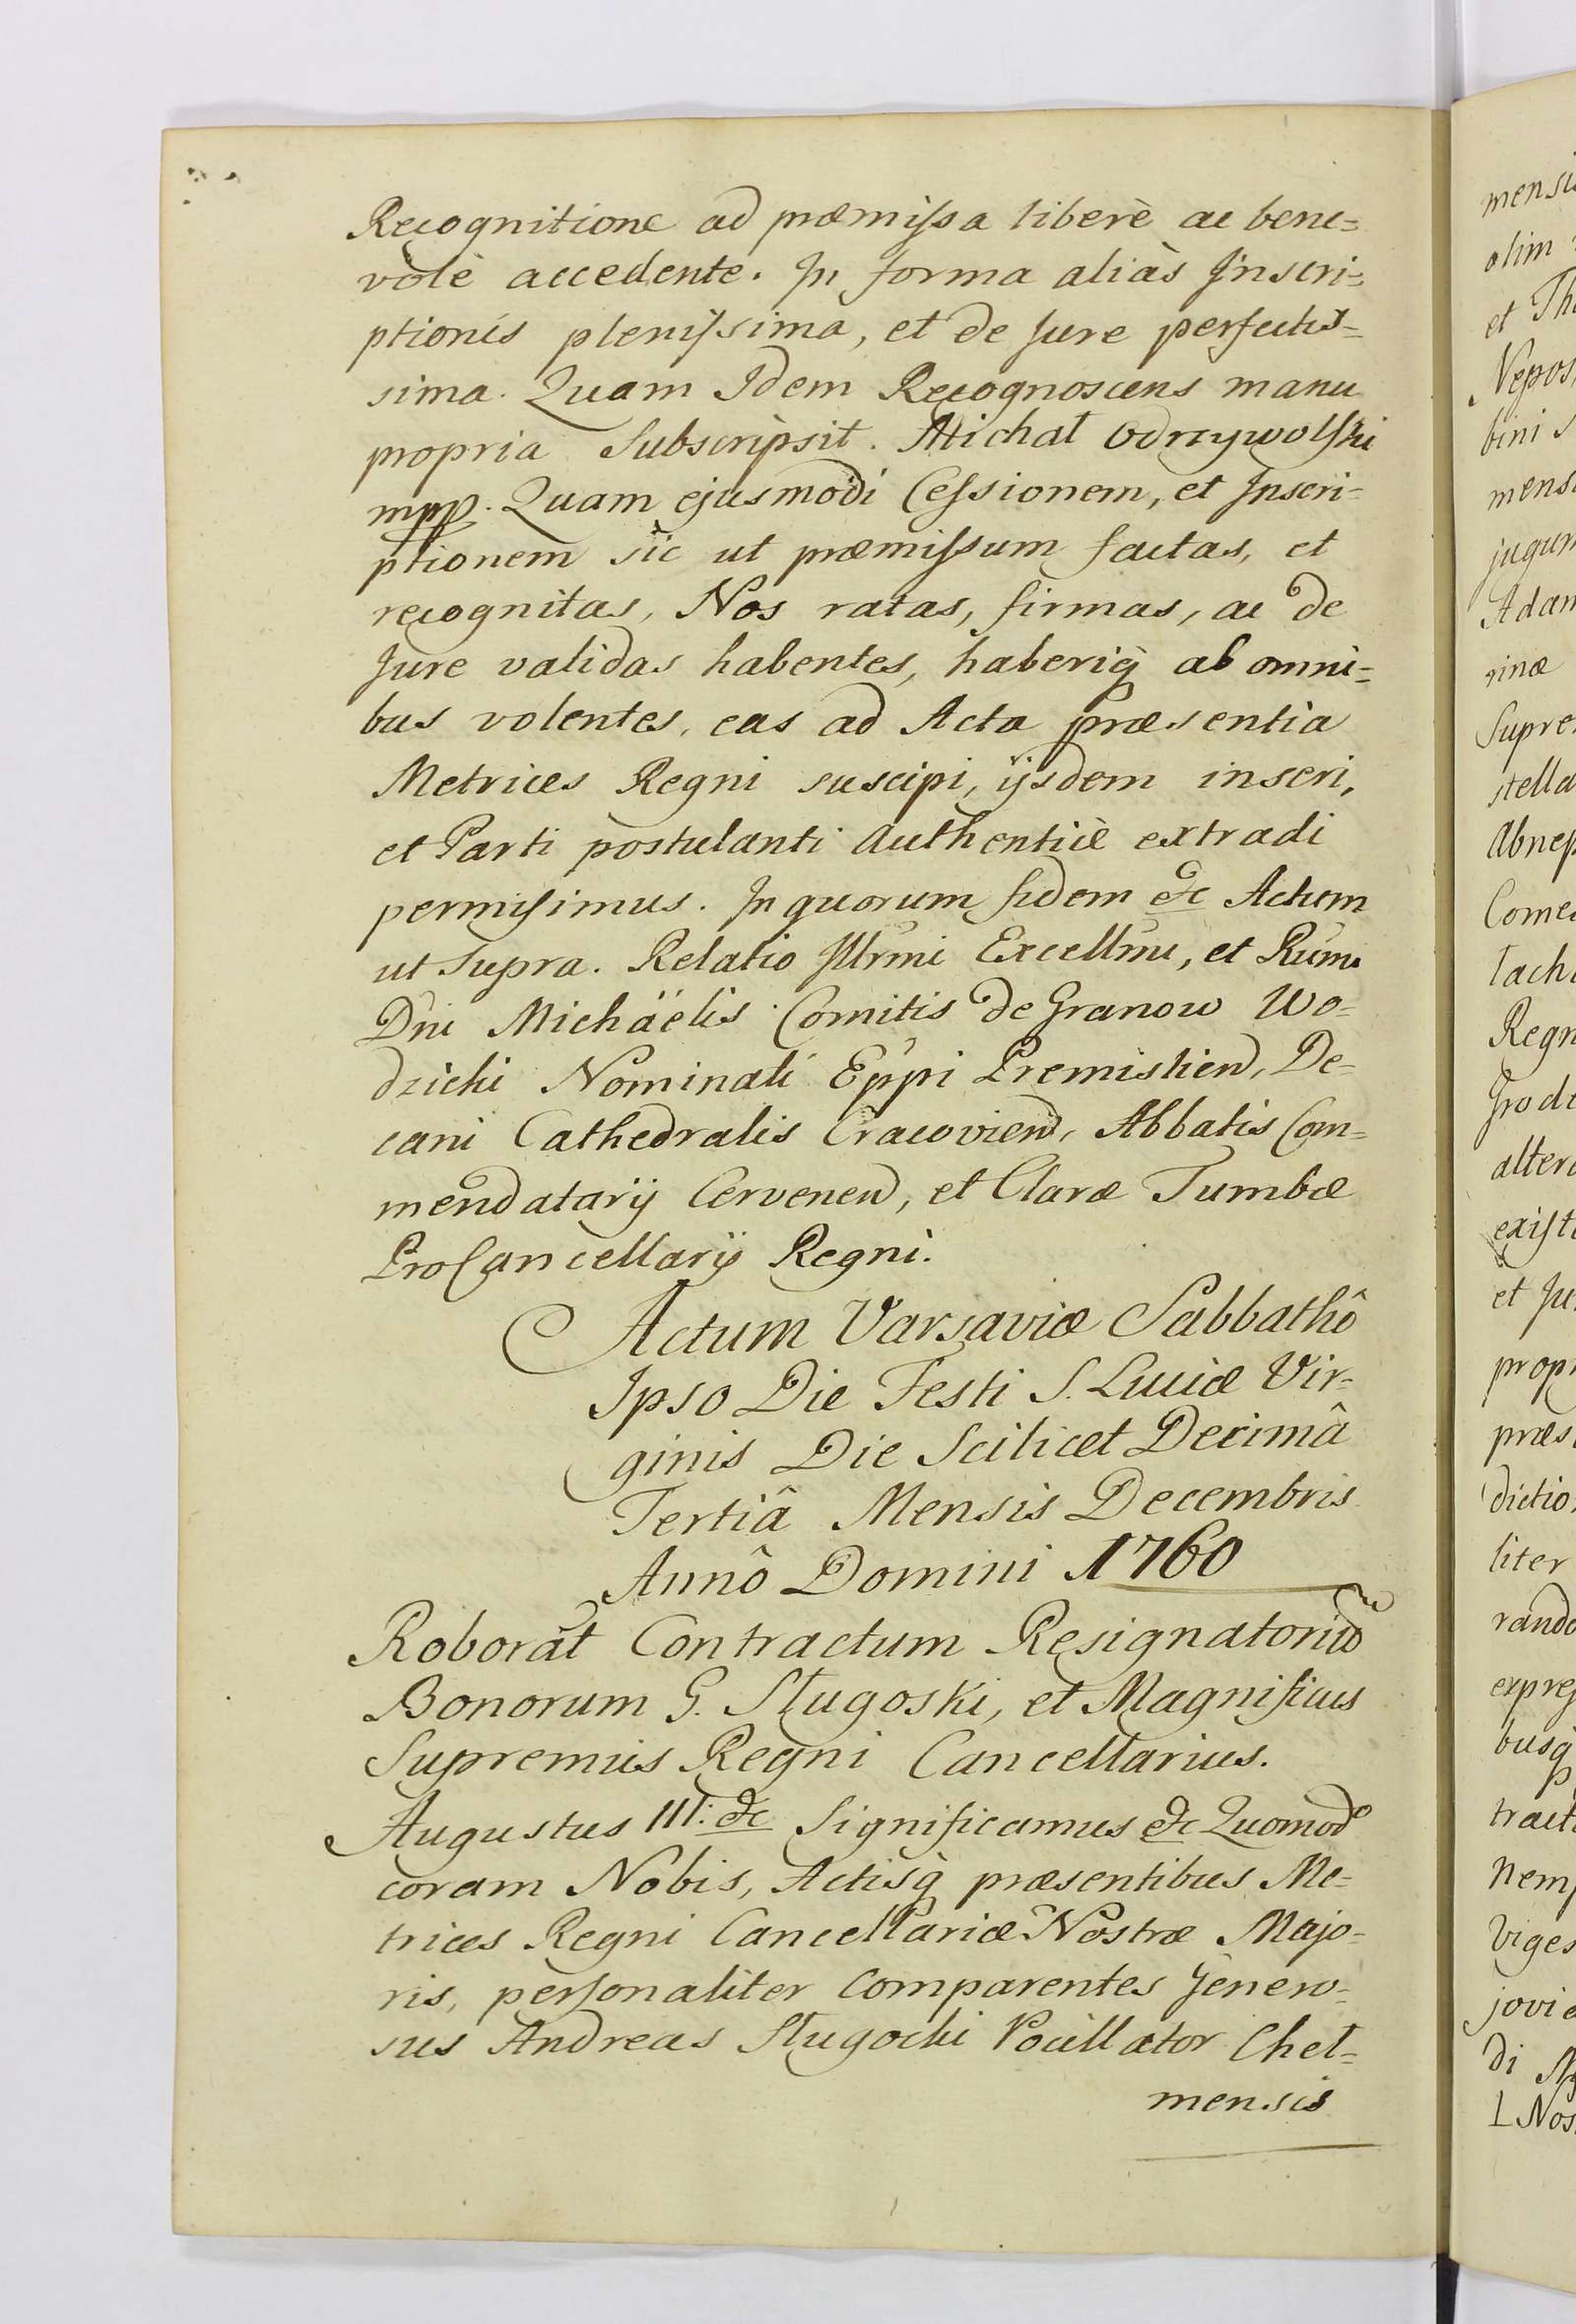 Recognitione ad præmissa liberè ac bene=
volè accedente. In forma aliàs Inscri=
ptionis plenissima, et de Jure perfectis=
sima. Quam Idem Recognoscens manu
propria Subscripsit. Michał Odrzywolski
mpp. Quam ejusmodi Cessionem, et Inscri=
ptionem sic ut præmissum factas, et
recognitas, Nos ratas, firmas, ac de
Jure validas habentes, haberiq̀ ab omni=
bus volentes, eas ad Acta præsentia
Metrices Regni suscipi, ijsdem inseri,
et Parti postulanti Authenticè extradi
permisimus. In quorum fidem &c Actum
ut supra. Relatio Illrmi Excellmi, et Rŭmi
Dni Michäelis Comitis de Granow Wo=
dzicki Nominati Eppi Premislien, De=
cani Cathedralis Cracovien, Abbatis Com=
mendatarij Cervenen, et Claræ Tumbæ
ProCancellarij Regni.
Actum Varsaviæ Sabbathô
Ipso Die Festi S. Luciæ Vir=
ginis Die Scilicet Decimâ
Tertiâ Mensis Decembris
Annô Domini 1760
Roborat Contractum Resignatorium
Bonorum G. Sługoski, et Magnificus
Supremus Regni Cancellarius.
Augustus III: &c Significamus &c Quomodo
coram Nobis, Actisq̀ præsentibus Me=
trices Regni Cancellariæ Nostræ Majo=
ris, personaliter Comparentes Genero=
sus Andreas Sługocki Pocillator Cheł=
mensis
mensi
olim
et Th
Nepos
bini s
mens
jugum
Adam
rinæ
Supre
stella
Abnep
Come
tach
Regn
Grodi
alter
exist
et Ju
propr
præs
dictio
liter
rando
expres
busq̀
tract
nem
Viges
jovi
di
L Nos